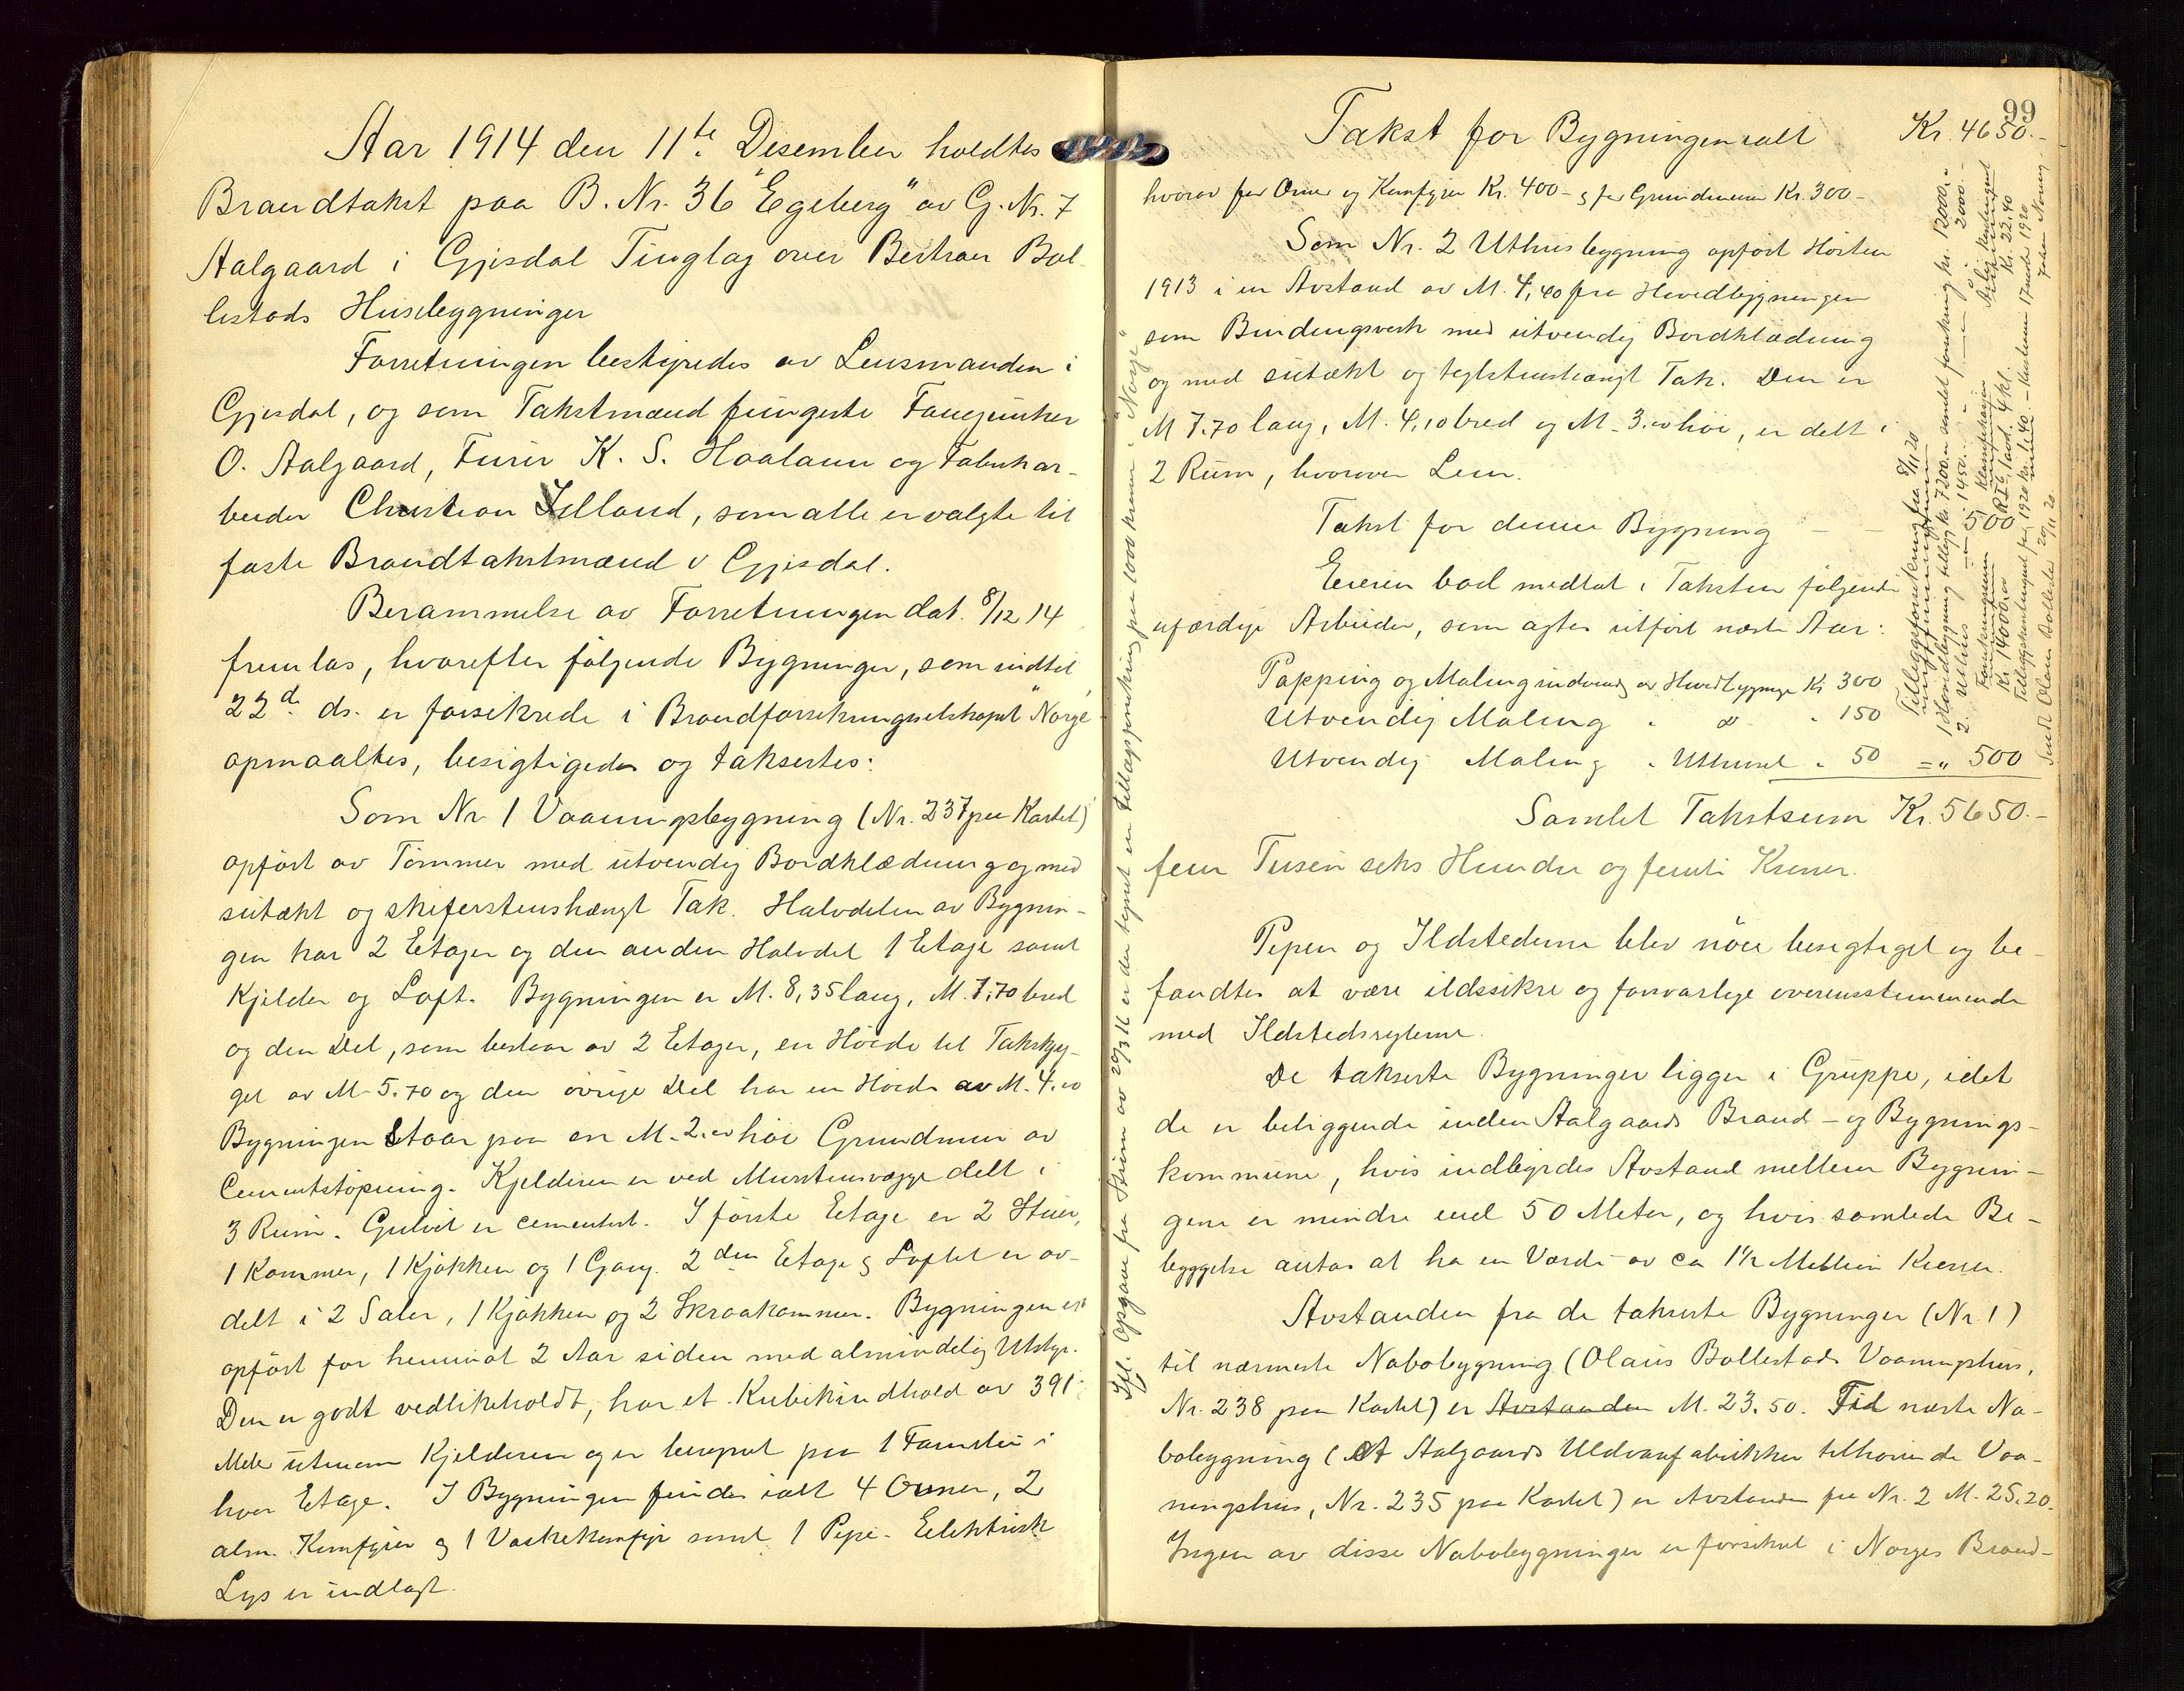 Aar 1914 den 11te Desember holdtes
Brandtakst paa B. Nr. 36 "Egeberg" av G. Nr. 7
Aalgaard i Gjesdal Tinglag over Bertran Bol-
lestads Husebygninger
Forretningen bestyredes av Lensmanden i
Gjesdal, og som Takstmænd fungerte Fanejunker
O. Aalgaard, Furer K. S. Haaland og Fabrikar-
beider Christian Jelland, som alle er valgte til
faste Brandtakstmænd i Gjesdal.
Berammelse av Forretningen dat. 8/12 14
fremlas, hvorefter følgende Bygninger, som indtil
22d. ds. er forsikrede i Brandforsikringsselskapet "Norge"
opmaaltes, besigtigedes og taksertes:
Som Nr 1 Vaaningsbygning (Nr. 237 paa Kartet)
opført av Tømmer med utvendig Bordklædning og med
sutækt og skiferstenshængt Tak. Halvdelen av Bygnin-
gen har 2 Etager og den anden Halvdel 1 Etage samt
Kjelder og Loft. Bygningen er M. 8,35 lang, M. 7.70 bred
og den Del, som bestaar av 2 Etager, en Høide til Takskjæg-
get av M 5.70 og den øvrige Del har en Høide av M. 4.00
Bygningen Staar paa en M. 2.00 høi Grundmur av
Cementstøpning. Kjelderen er ved Murstensvægge delt i
3 Rum. Gulvet er cementert. I første Etage er 2 Stuer,
1 Kammer, 1 Kjøkken og 1 Gang. 2den Etage & Loftet er av-
delt i 2 Saler, 1 Kjøkken og 2 Skraakammer. Bygningen er
opført for henimot 2 Aar siden med almindelig Utstyr.
Den er godt vedlikeholdt, har et Kubikindhold av 391
Meter utenom Kjelderen og er beregnet paa 1 Familie i
hver Etage. I Bygningen findes ialt 4 Ovner, 2
alm. Komfyrer & 1 Vaskekomfyr samt 1 Pipe. Elektrisk
Lys er indlagt.
Ifl. Opgave fra Styret av 29/3 16 er der tegnet en tillægsforsikring paa 1000 kroner i "Norge"
99
Takst for Bygningen ialt Kr. 4650.-
hvorav for Ovner og Komfyrer Kr. 400 - & for Grundmuren Kr. 300 -
Som Nr. 2 Uthusbygning opført Høsten
1913 i en Avstand av M. 4,40 fra Hovedbygningen
som Bindingsverk med utvendig Bordklædning
og med sutækt og teglstenshængt Tak. Den er
M 7.70 lang, M. 4,10 bred og M. 3.00 høi, er delt i
2 Rum, hvorover Lem.
Takst for denne Bygning - - " 500
Eieren bad medtat i Taksten følgende
ufærdige Arbeider, som agtes utført næste Aar:
Papping og Maling indvendig av Hovedbygninge Kr 300
Utvendig Maling " do " 150
Utvendig Maling " Uthuset " 50 = " 500
Samlet Takstsum Kr. 5650.-
fem Tusen seks Hundre og femti Kroner.
Pipen og Ildstederne blev nøie besigtiget og be-
fandtes at være ildssikre og forsvarlige overensstemmende
med Ildstedsreglerne.
De takserte Bygninger ligger i Gruppe, idet
de er beliggende inden Aalgaards Brand- og Bygnings-
kommune, hvis indbyrdes Avstand mellem Bygnin-
gene er mindre end 50 Meter, og hvis samlede Be-
byggelse antas at ha en Værdi av ca 1 1/2 Million Kroner.
Avstanden fra de takserte Bygninger (Nr. 1)
til nærmeste Nabobygning (Olaus Bollestads Vaaningshus,
Nr. 238 paa Kartet) er Avstanden M. 23.50. Til næste Na-
bobygning (et Aalgaards Uldvarefabrikker tilhørende Vaa-
ningshus, Nr. 235 paa Kartet) er Avstanden fra Nr. 2 M. 25.20.
Ingen av disse Nabobygninger er forsikret i Norges Brand-
Tillægsforsikring fra 8/11 20
1 Hovedbygning tillegg kr. 7200.- samlet forsikring kr. 12000.-
2. Uthus - " - 1450.- - " - 2000.-
Forsikringssum Klassifikasjon Årlig kontingent
Kr 14000.00 R I 6, lavd. 4 kl. Kr. 22.40
Tillægskontingent for 1920 kr. 1.40
Sendt Olaus Bollestad 20/11 20